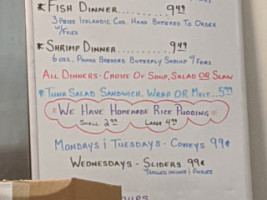 * Fish Dinner......... 9.49
3 Piece Icelandic Cod, Hand Battered To Order
w/Fries
* Shrimp Dinner......... 9.49
6 oz., Panko Breaded Butterfly Shrimp w/ Fries
All Dinners - Choice Of Soup, Salad Or Slaw
* Tuna Salad Sandwich, Wrap Or Melt...5.99
* We Have Homemade Rice Pudding *
Small 2.99 Large 4.99
Mondays & Tuesdays - Coneys 99¢
Wednesdays - Sliders 99¢